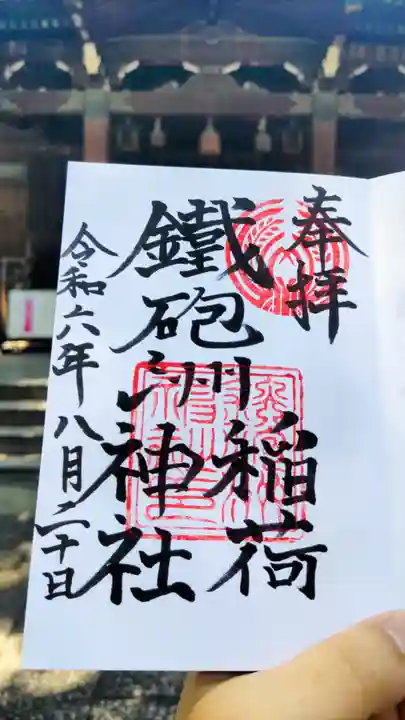 奉拝
鐵砲洲稲荷神社
令和六年八月二十日